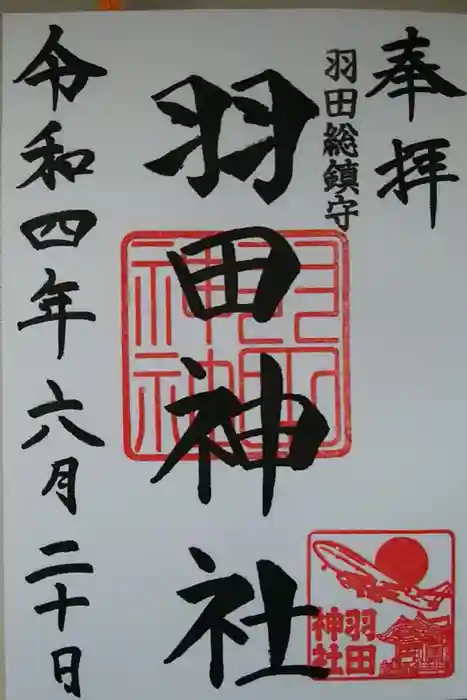 奉拝
羽田総鎮守
羽田神社
令和四年六月二十日
羽田
神社